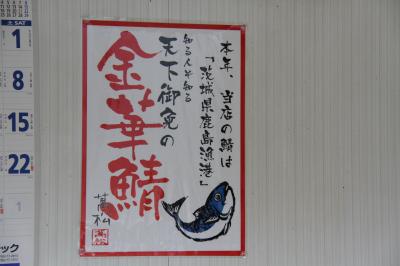 本年、当店の鯖は
「茨城県鹿島漁港」
知る人ぞ知る
天下御免の
金華鯖
萬松
土 SAT
1
8
15
22
1
ック